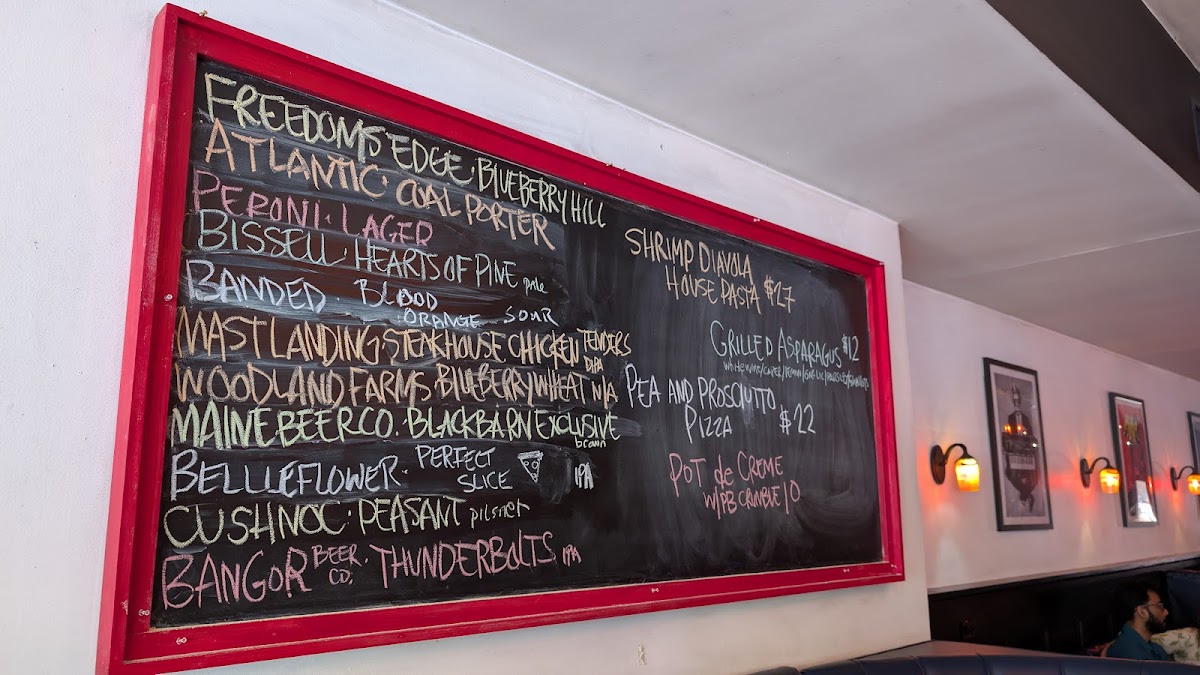 FREEDOMS EDGE · BLUEBERRY HILL
ATLANTIC · COAL PORTER
PERONI · LAGER
BISSELL · HEARTS OF PINE pale
BANDED BLOOD
ORANGE SOUR
MAST LANDING STEAKHOUSE. CHICKEN TENDERS
DIPA
WOODLAND FARMS BLUEBERRY WHEAT N/A
MAINE BEER CO. BLACK BARN EXCLUSIVE
brown
BELLLEFLOWER · PERFECT
SLICE IPA
CUSHNOC · PEASANT pilsner
BANGOR BEER
CO. · THUNDERBOLTS IPA
SHRIMP DIAVOLA
HOUSE PASTA $27
GRILLED ASPARAGUS $12
WHITE WINE/CAPER/LEMON/GARLIC/
PEA AND PROSCIUTTO
PIZZA $22
POT de CREME
W/PB CRUMBLE 10